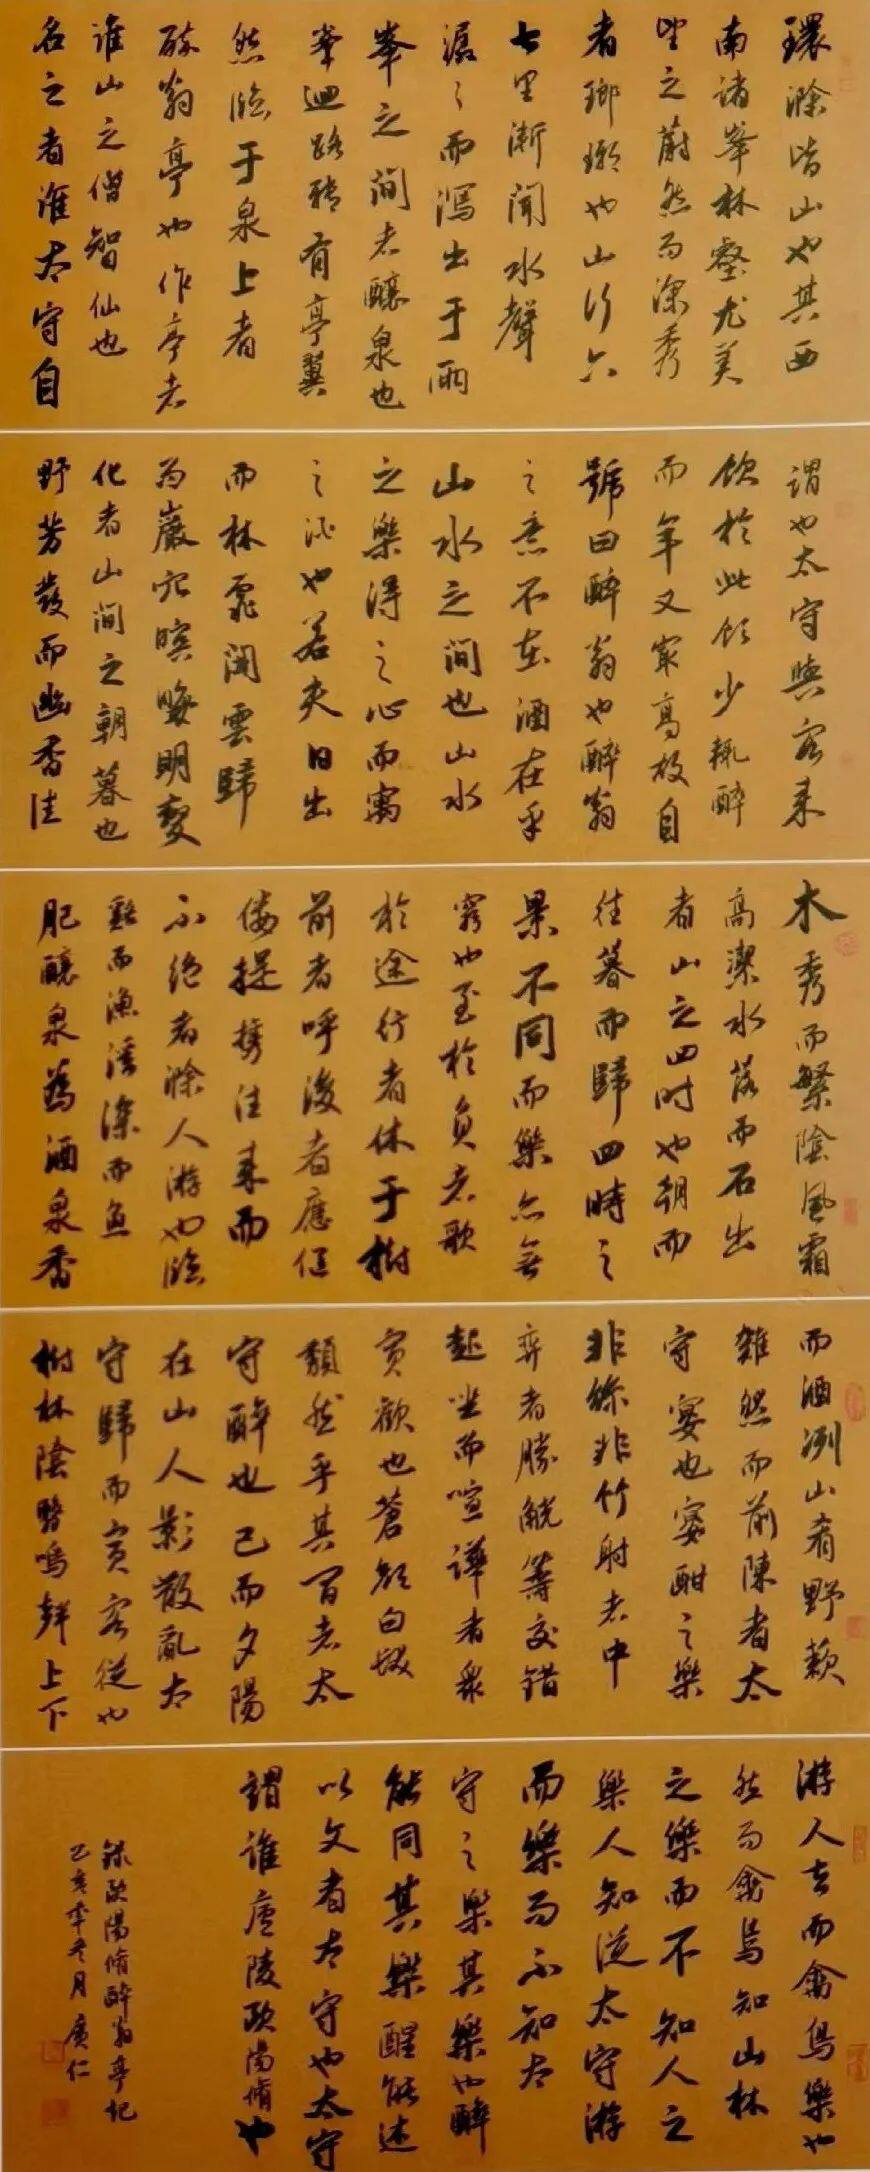 環滁皆山也其西
南諸峯林壑尤美
望之蔚然而深秀
者瑯琊也山行六
七里漸聞水聲
潺々而瀉出于兩
峯之間者釀泉也
峯迴路轉有亭翼
然臨于泉上者
醉翁亭也作亭者
誰山之僧智仙也
名之者誰太守自
謂也太守與客來
飲於此飲少輒醉
而年又最高故自
號曰醉翁也醉翁
之意不在酒在乎
山水之間也山水
之樂得之心而寓
之酒也若夫日出
而林霏開雲歸
為巖穴暝晦明變
化者山間之朝暮也
野芳發而幽香佳
木秀而繁陰風霜
高潔水落而石出
者山之四時也朝而
往暮而歸四時之
景不同而樂亦無
窮也至於負者歌
於途行者休于樹
前者呼後者應傴
僂提攜往來而
不絕者滁人游也臨
谿而漁溪深而魚
肥釀泉為酒泉香
而酒冽山肴野蔌
雜然而前陳者太
守宴也宴酣之樂
非絲非竹射者中
弈者勝觥籌交錯
起坐而喧譁者眾
賓歡也蒼顏白髮
頹然乎其間者太
守醉也已而夕陽
在山人影散亂太
守歸而賓客從也
樹林陰翳鳴聲上下
游人去而禽鳥樂也
然而禽鳥知山林
之樂而不知人之
樂人知從太守游
而樂而不知太
守之樂其樂也醉
能同其樂醒能述
以文者太守也太守
謂誰廬陵歐陽脩也
錄歐陽脩醉翁亭記
己亥年冬月廣仁